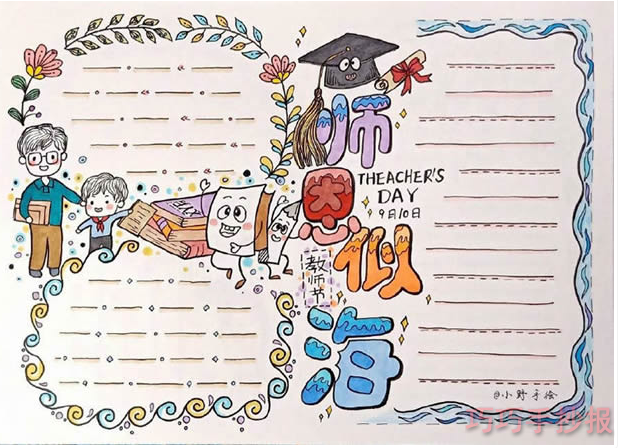 师恩似海
THEACHER'S
DAY
9月10日
教师节
@小野手绘
巧巧手抄报